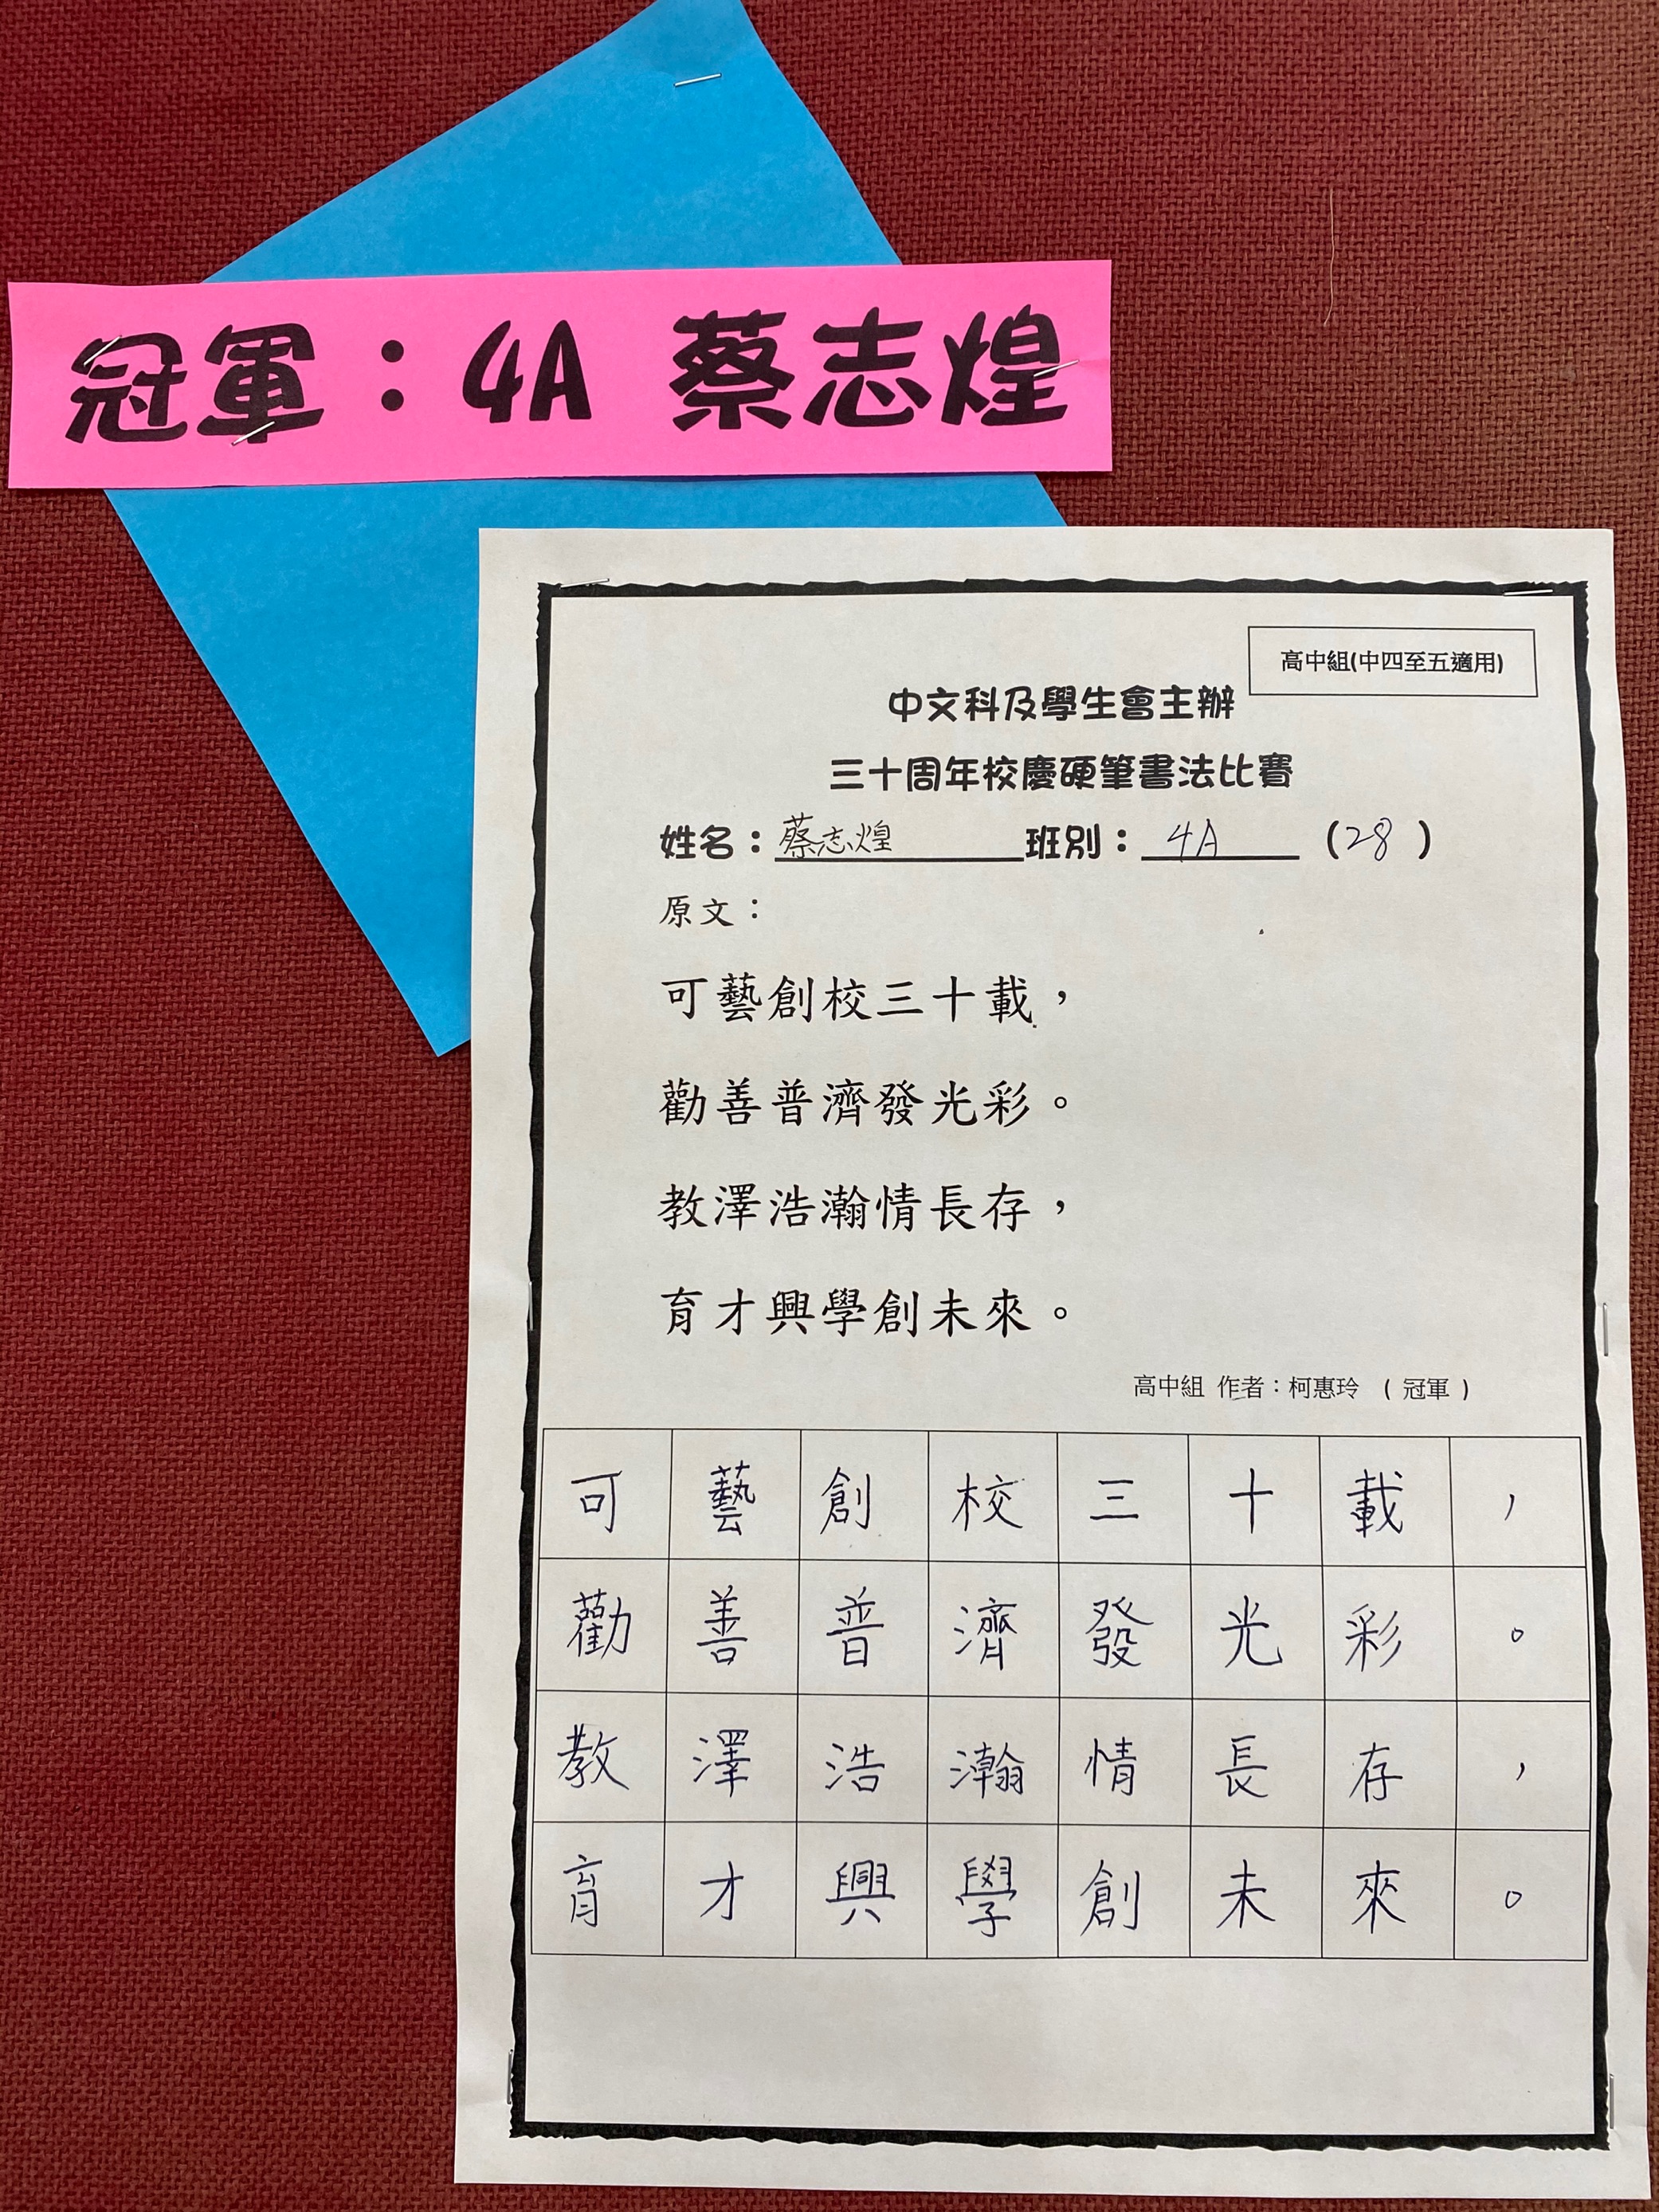 冠軍：4A 蔡志煌
高中組(中四至五適用)
中文科及學生會主辦
三十周年校慶硬筆書法比賽
姓名：蔡志煌 班別：4A (28)
原文：
可藝創校三十載，
勸善普濟發光彩。
教澤浩瀚情長存，
育才興學創未來。
高中組 作者：柯惠玲 (冠軍)
可藝創校三十載，
勸善普濟發光彩。
教澤浩瀚情長存，
育才興學創未來。